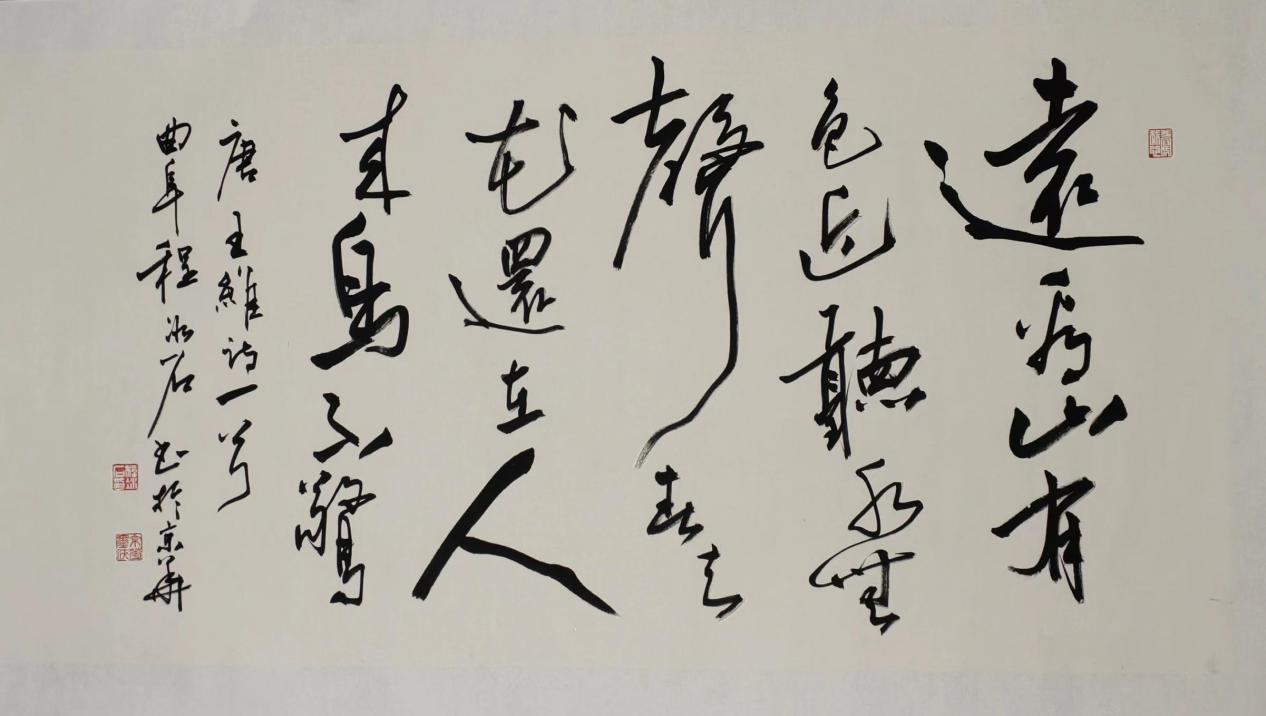 遠看山有
色近聽水無
聲春去
花還在人
来鳥不驚
唐王維诗一首
曲阜程冰石书於京華